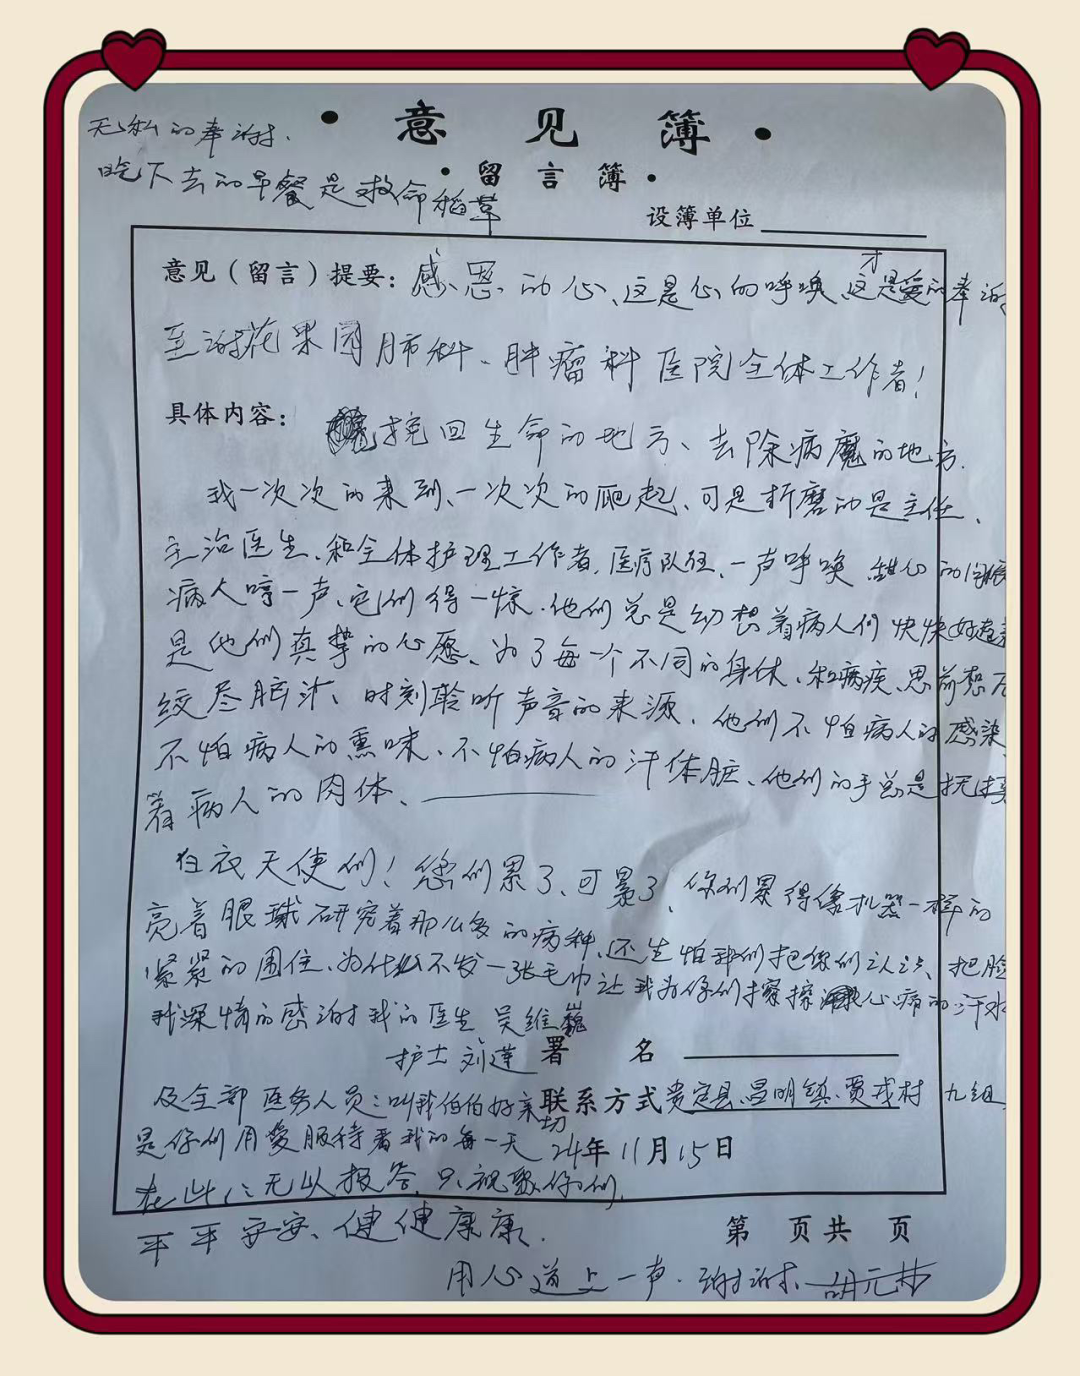 意见簿
无私的奉谢.
留言簿
吃下去的早餐是救命稻草
设簿单位
意见（留言）提要：感恩的心、这是心的呼唤、这才是爱的奉
至谢花果园肺科、肿瘤科医院全体工作者！
具体内容： 挽回生命的地方、去除病魔的地方.
我一次次的来到、一次次的爬起、可是折磨的是主任、
主治医生、和全体护理工作者、医疗队伍、一声呼唤 甜心的
病人哼一声、它们得一惊.他们总是幻想着病人们快快好
是他们真挚的心愿、为了每一个不同的身体、和病疾、思前想
绞尽脑汁、时刻聆听声音的来源、他们不怕病人的感染
不怕病人的熏味、不怕病人的汗体脏、他们的手总是抚摸
着病人的肉体、
白衣天使们！您们累了、可累了、你们累得像机器一样的
亮着眼球研究着那么多的病种、还生怕我们把你们认识、把脸
紧紧的围住、为什么不发一张毛巾让我为你们擦擦心病的汗水
我深情的感谢我的医生 吴维巍
护士 刘莲 署名
及全部医务人员：叫我伯伯好亲切 联系方式 贵定县昌明镇、贾戎村 九组
是你们用爱服侍着我的每一天 24年11月15日
在此：无以报答、只祝愿你们、
平平安安、健健康康.
第 页共 页
用心道上一声.谢谢. 胡元